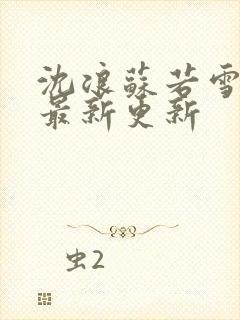 沈浪蘇若雪
最新更新
虫2